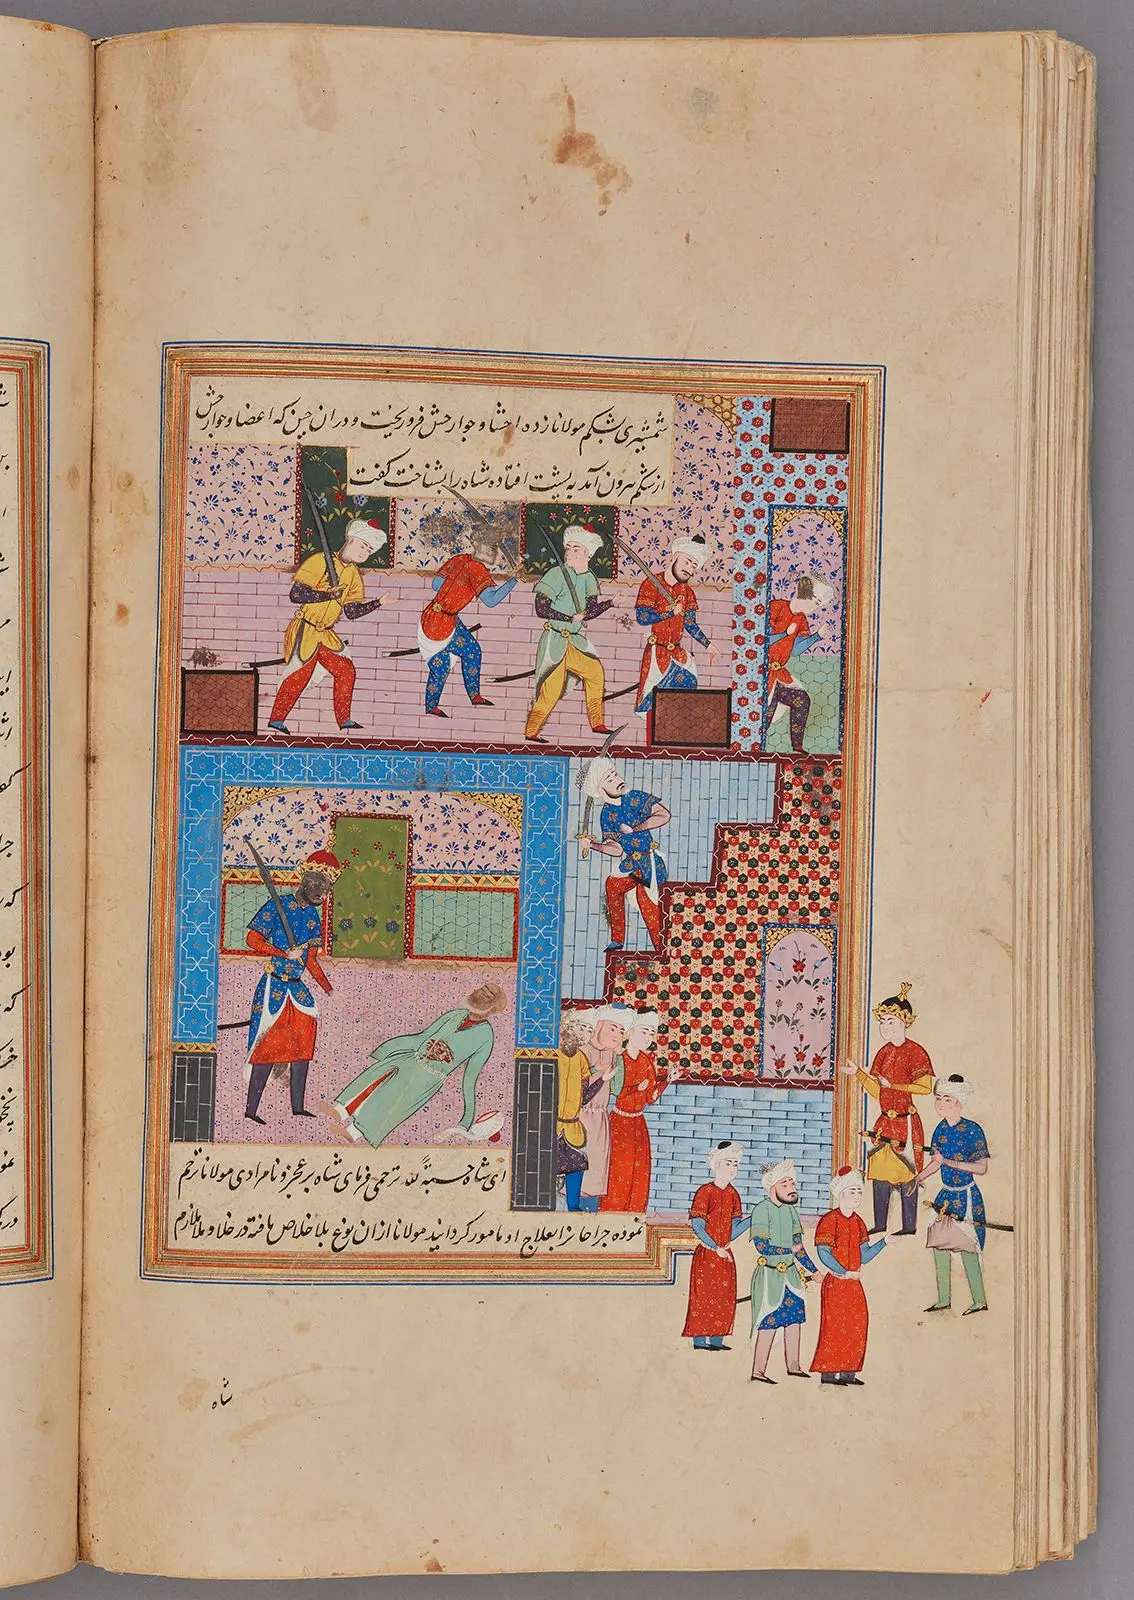 شمشیری بشکم مولانا زده احشا و جوارحش فرو ریخت و دران حین که اعضا و جوارحش
از شکم بیرون آمد به پشت افتاده شاه را بشناخت گفت
ای شاه حسبة لله ترحمی فرمای شاه بر عجز و نامرادی مولانا ترحم
نموده جراحانرا بعلاج او مامور کردانید مولانا ازان نوع بلا خلاص یافته در خلا و ملا ملازم
شاه